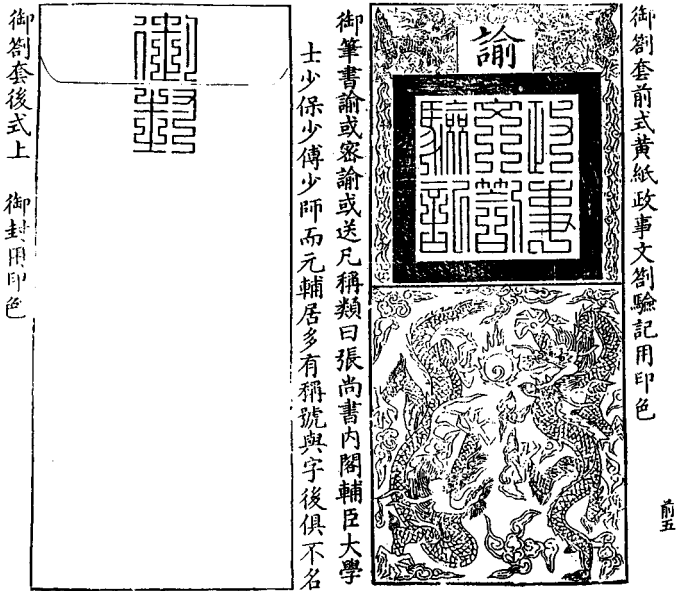 御劄套前式黄紙政事文劄驗記用印色
前五
諭
御筆書諭或密諭或送凡稱類曰張尚書內閣輔臣大學
士少保少傅少師而元輔居多有稱號與字後俱不名
御封
御劄套後式上 御封用印色